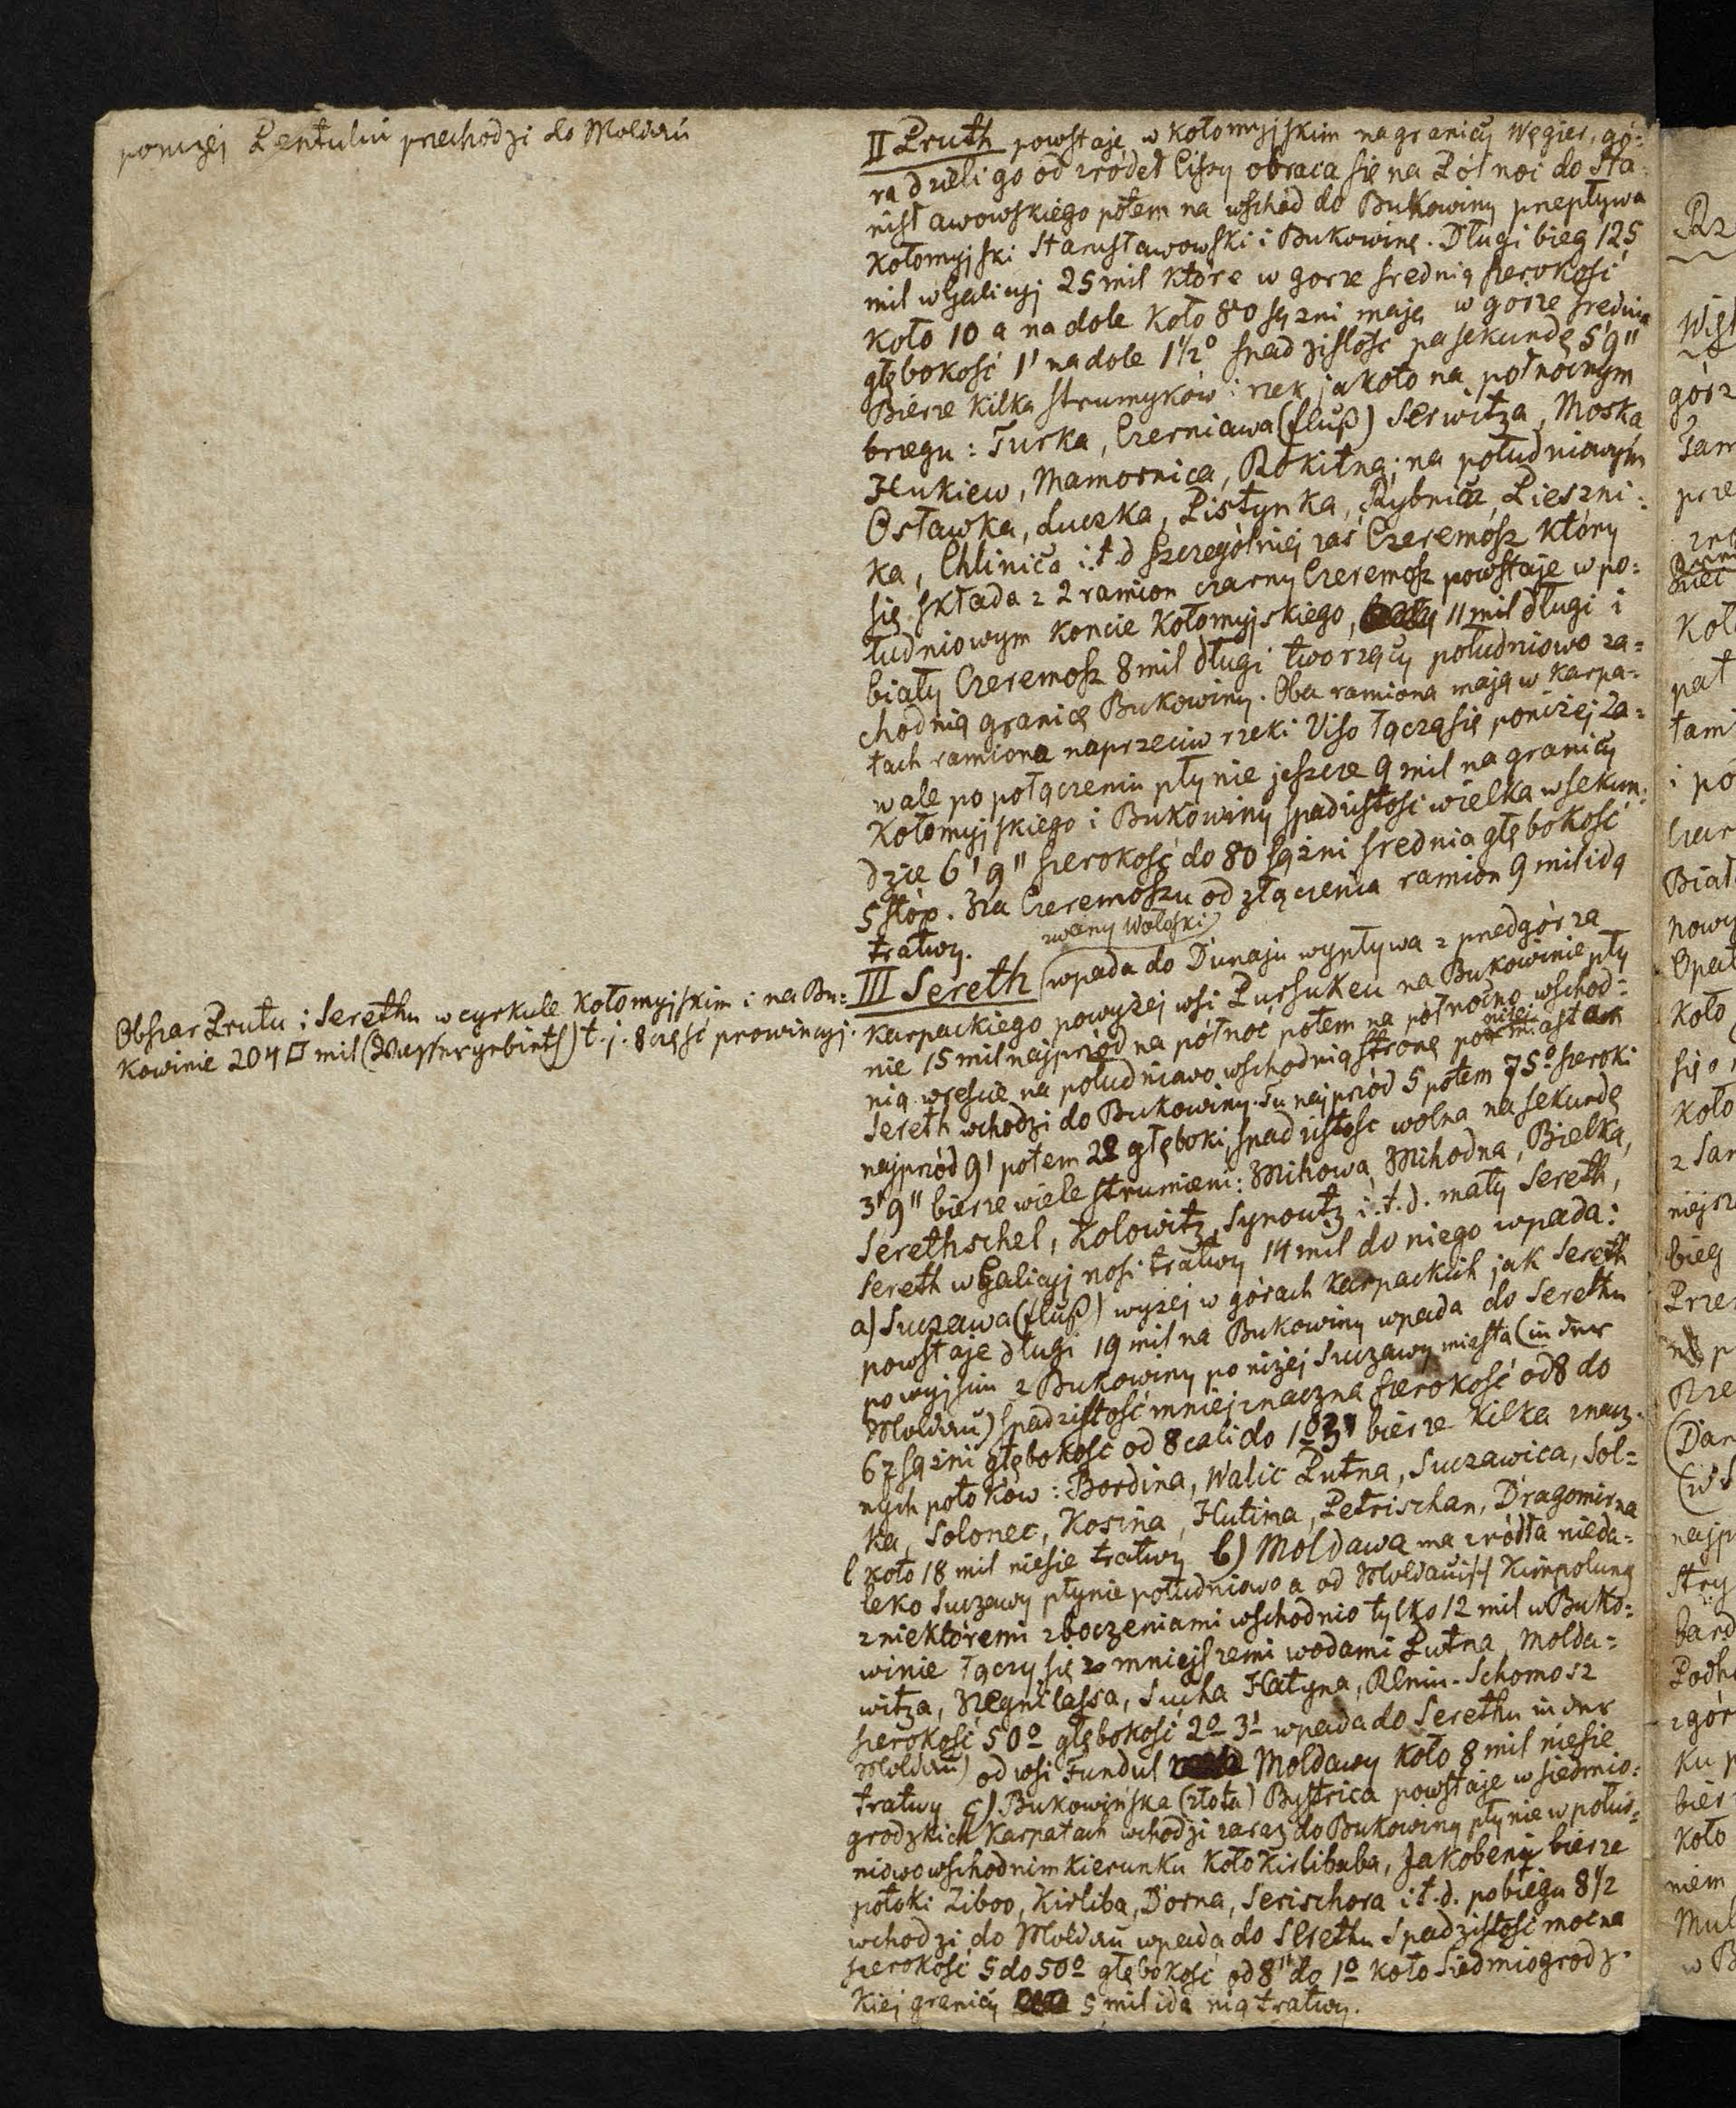 poniżej Pentuluú przechodzi do Moldau
II Pruth powstaje w Kołomyjskim na granicy Węgier, gó-
ra dzieli go od zródeł Cissy obraca się na Półnoć do Sta-
nisławowskiego potem na wschód do Bukowiny przepływa
Kołomyjski Stanisławowski i Bukowinę. Długi bieg 125
mil w Galicyj 25 mil które w gorze średnią szerokość
Koło 10 a na dole Koło 80 sązni mają w górze średnia
głębokość 1' na dole 1½° spadzistość na sekundę 5'9"
Bierze kilka strumyków i rzek jakoto na północnym
brzegu: Turka, Czerniawa (fluß) Serwitza, Moska
Hukiew, Mamornica, Rokitna; na południowym
Osławka, Łuczka, Pistynka, Rybnica, Pieszni-
ka, Chlinica i.t.d szczególniej zaś Czeremosz który
się składa z 2 ramion czarny Czeremosz powstaje w po-
łudniowym koncie Kołomyjskiego, 11 mil długi i
biały Czeremosz 8 mil długi tworzący południowo za-
chodnią granicę Bukowiny. Oba ramiona mają w Karpa-
tach ramiona naprzeciw rzeki Viso łączą się poniżej Za-
wale po połączeniu płynie jeszcze 9 mil na granicy
Kołomyjskiego i Bukowiny spadzistość wielka w sekun-
dzie 6'9" szerokość do 80 sązni średnia głębokość
5 stóp. Na Czeremoszu od złączenia ramion 9 mil idą
tratwy.
zwany Wołoski
III Sereth wpada do Dunaju wypływa z przedgórza
Obszar Prutu i Serethu w cyrkule Kołomyjskim i na Bu-
kowinie 204 □ mil (Wassergebieth) t.j. 8 część prowincyj.
Karpackiego powyżej wsi Pursukeu na Bukowinie pły
nie 15 mil najprzód na północ potem na północno wschod-
nią wreście na południowo wschodnią stronę poniżej miasta
Sereth wchodzi do Bukowiny. Tu najprzód 5 potem 75° szeroki
najprzód 9' potem 22 głęboki, spadzistość wolna na sekundę
3'9" bierze wiele strumieni: Mihowa, Mihodna, Bielka,
Serethschel, Kolowitz, Synoutz i.t.d. mały Sereth,
Sereth w Galicyj nosi tratwy 14 mil do niego wpada:
a) Suczawa (fluß) wyżej w górach Karpackich jak Sereth
powstaje długi 19 mil na Bukowiny wpada do Serethu
po wyjściu z Bukowiny poniżej Suczawy miasta (in der
Moldau) spadzistość mniej znaczna szerokość od 8 do
67 sązni głębokość od 8 cali do 1°3' bierze kilka znacz-
nych potoków: Bordina, Walic Putna, Suczawica, Sol-
ka, Solonec, Kosina, Hutina, Petrischan, Dragomirna
koło 18 mil niesie tratwy b) Moldawa ma zródła nieda-
leko Suczawy płynie południowo a od Moldauisch Kimpolung
z niektóremi zboczeniami wschodnio tylko 12 mil w Buko-
winie łączy się z mniejszemi wodami Putna, Molda-
witza, Negrilassa, Sucha Hatyna, Reniu-Schomosz
szerokość 50° głębokość 2° 3' wpada do Serethu in der
Moldau) od wsi Fundul Moldawy koło 8 mil niesie
tratwy c) Bukowińska (złota) Bystrica powstaje w siedmio-
grodzkich Karpatach wchodzi zaraz do Bukowiny płynie w połud-
niowo wschodnim kierunku koło Kirlibaba, Jakobeny bierze
potoki Ziboo, Kirliba, Dorna, Serischora i.t.d. po biegu 8½
wchodzi do Moldau wpada do Serethu Spadzistość mocna
szerokość 5 do 50° głębokość od 8" do 1° koło Siedmiogrodz-
kiej granicy 5 mil idą nią tratwy.